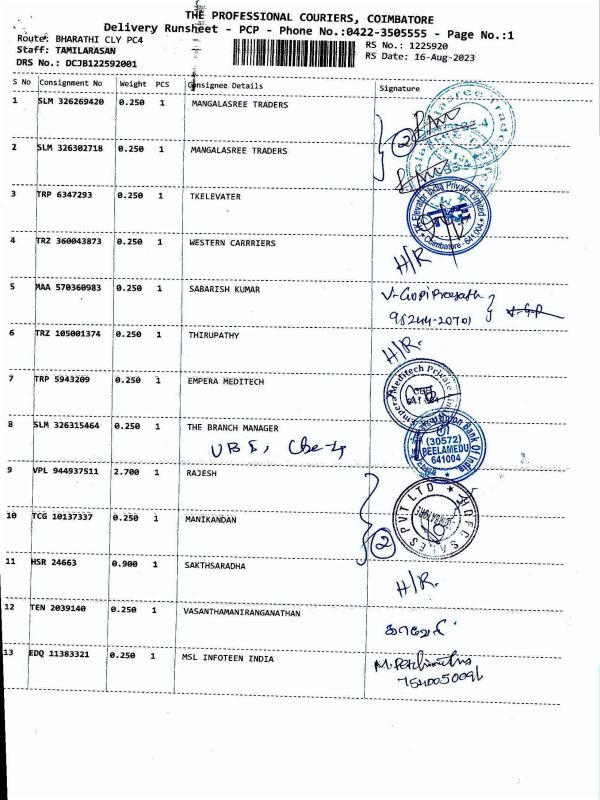 THE PROFESSIONAL COURIERS, COIMBATORE
Delivery Runsheet - PCP - Phone No.:0422-3505555 - Page No.:1
Route: BHARATHI CLY PC4
RS No.: 1225920
Staff: TAMILARASAN
RS Date: 16-Aug-2023
DRS No.: DCJB122592001
S No Consignment No Weight PCS Consignee Details Signature
1 SLM 326269420 0.250 1 MANGALASREE TRADERS
2 SLM 326302718 0.250 1 MANGALASREE TRADERS
2
3 TRP 6347293 0.250 1 TKELEVATER
TK Elevator India Private Limited
TKE
Coimbatore - 641004
4 TRZ 360043873 0.250 1 WESTERN CARRRIERS
H/R
5 MAA 570360983 0.250 1 SABARISH KUMAR
6 TRZ 105001374 0.250 1 THIRUPATHY
H/R.
7 TRP 5943209 0.250 1 EMPERA MEDITECH
Empera Meditech Private Limited
8 SLM 326315464 0.250 1 THE BRANCH MANAGER
UBI, Cbe-4
Union Bank Of India
(30572)
PEELAMEDU
641004
9 VPL 944937511 2.700 1 RAJESH
HDFC SALES PVT LTD
10 TCG 10137337 0.250 1 MANIKANDAN
2
11 HSR 24663 0.900 1 SAKTHSARADHA
H/R.
12 TEN 2039140 0.250 1 VASANTHAMANIRANGANATHAN
13 EDQ 11383321 0.250 1 MSL INFOTEEN INDIA